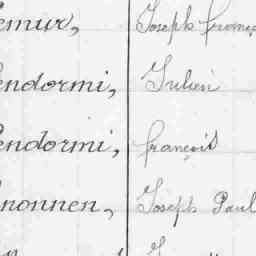 emur, Joseph franç
endormi, Julien
endormi, françois
nonnen, Joseph Paul